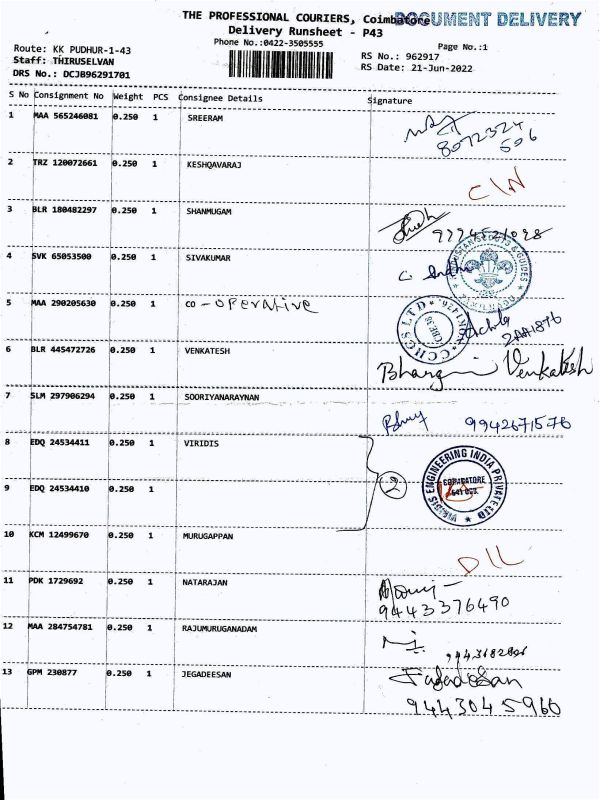 THE PROFESSIONAL COURIERS, Coimbatore
DOCUMENT DELIVERY
Delivery Runsheet - P43
Phone No.:0422-3505555
Page No.:1
Route: KK PUDHUR-1-43
Staff: THIRUSELVAN
DRS No.: DCJB96291701
RS No.: 962917
RS Date: 21-Jun-2022
S No Consignment No Weight PCS Consignee Details Signature
1 MAA 565246081 0.250 1 SREERAM
8072324
506
2 TRZ 120072661 0.250 1 KESHQAVARAJ
C/N
3 BLR 180482297 0.250 1 SHANMUGAM
4 SVK 65053500 0.250 1 SIVAKUMAR
5 MAA 290205630 0.250 1 CO - OPERATIVE
6 BLR 445472726 0.250 1 VENKATESH
Venkatesh
7 SLM 297906294 0.250 1 SOORIYANARAYNAN
9942671576
8 EDQ 24534411 0.250 1 VIRIDIS
2
VIRIDIS ENGINEERING INDIA PRIVATE LTD
COIMBATORE
9 EDQ 24534410 0.250 1
10 KCM 12499670 0.250 1 MURUGAPPAN
D/L
11 PDK 1729692 0.250 1 NATARAJAN
9443376490
12 MAA 284754781 0.250 1 RAJUMURUGANADAM
13 GPM 230877 0.250 1 JEGADEESAN
9443045960